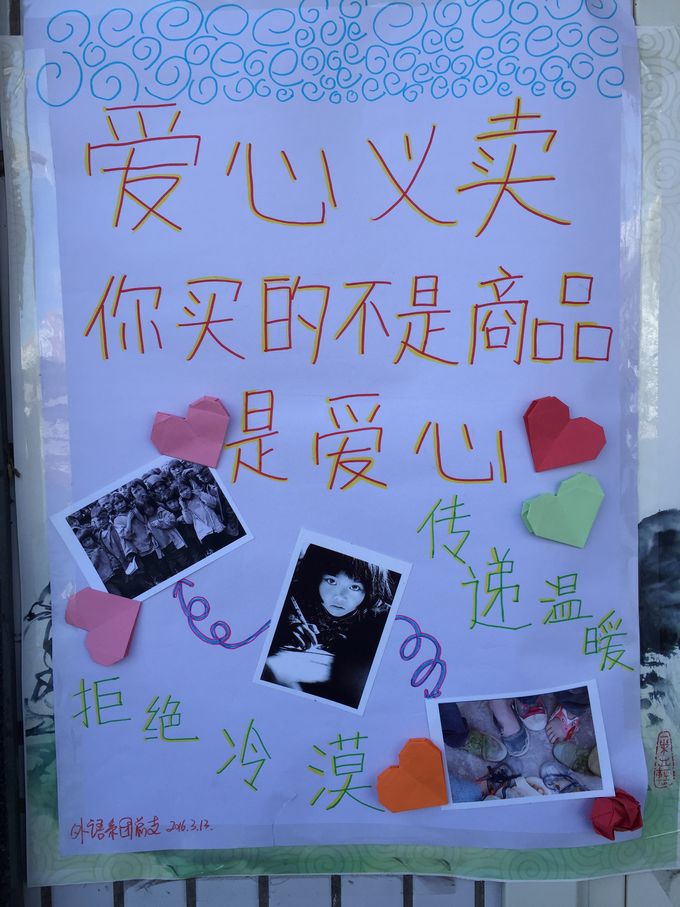 爱心义卖
你买的不是商品
是爱心
传递温暖
拒绝冷漠
外语系团前支 2016.3.13.